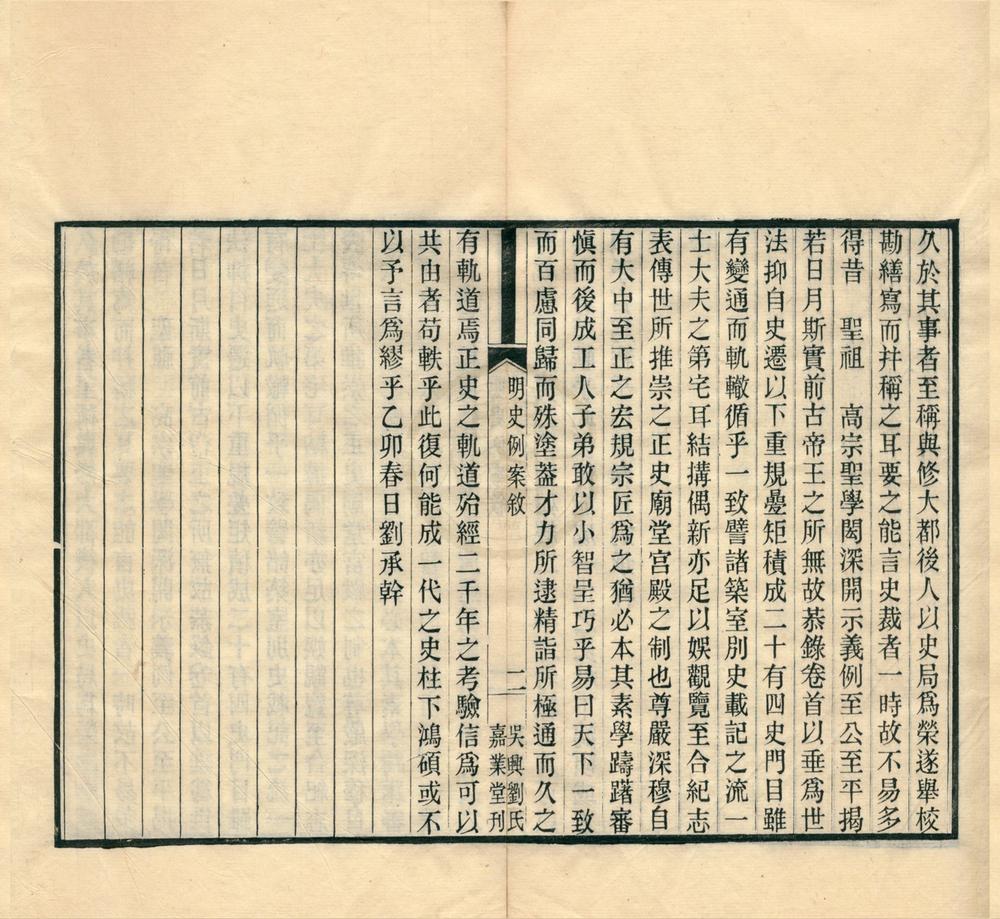 久於其事者至稱與修大都後人以史局爲榮遂舉校
勘繕寫而幷稱之耳要之能言史裁者一時故不易多
得昔　聖祖　高宗聖學閎深開示義例至公至平揭
若日月斯實前古帝王之所無故恭錄卷首以垂爲世
法抑自史遷以下重規疊矩積成二十有四史門目雖
有變通而軌轍循乎一致譬諸築室別史載記之流一
士大夫之第宅耳結搆偶新亦足以娛觀覽至合紀志
表傳世所推崇之正史廟堂宮殿之制也尊嚴深穆自
有大中至正之宏規宗匠爲之猶必本其素學躊躇審
愼而後成工人子弟敢以小智呈巧乎易曰天下一致
而百慮同歸而殊塗葢才力所逮精詣所極通而久之
明史例案敘
二
吳興劉氏
嘉業堂刊
有軌道焉正史之軌道殆經二千年之考驗信爲可以
共由者苟軼乎此復何能成一代之史柱下鴻碩或不
以予言爲繆乎乙卯春日劉承幹